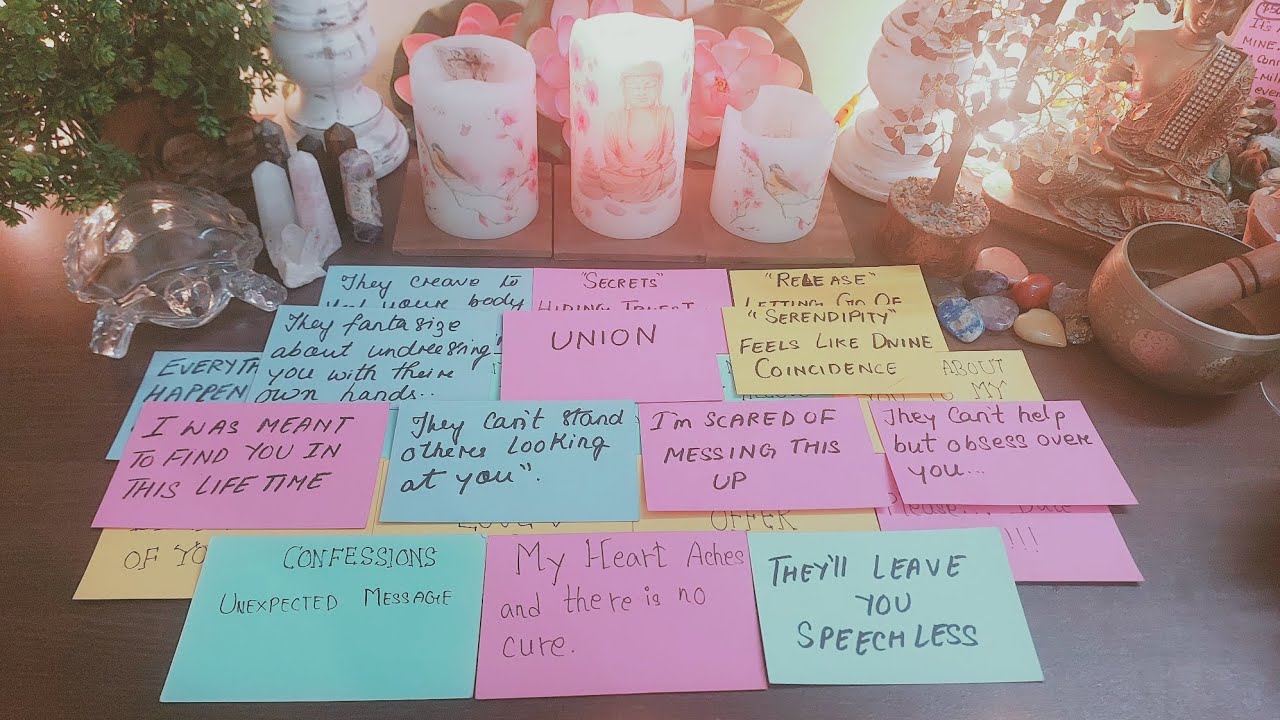 They creave to
your body
"SECRETS"
HIDING
"RELEASE"
LETTING GO OF
They fantasize
about undressing
you with their
own hands..
UNION
"SERENDIPITY"
FEELS LIKE DIVINE
COINCIDENCE
EVERYTH
HAPPEN
ABOUT
MY
I WAS MEANT
TO FIND YOU IN
THIS LIFETIME
They Can't stand
others Looking
at you".
I'm SCARED OF
MESSING THIS
UP
They Can't help
but obsess over
you...
OF YO
OFFER
!!!
CONFESSIONS
UNEXPECTED MESSAGE
My Heart Aches
and there is no
cure.
THEY'LL LEAVE
YOU
SPEECHLESS
It's
MINE